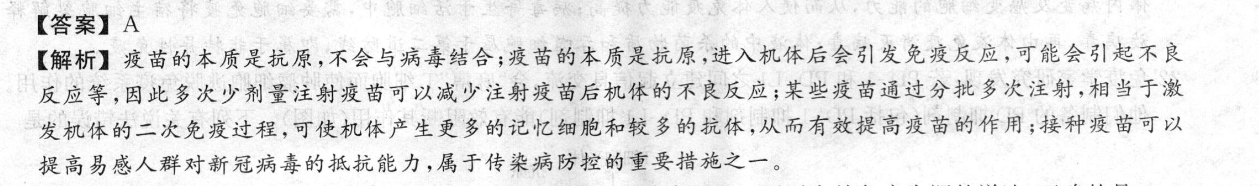 【答案】A
【解析】疫苗的本质是抗原,不会与病毒结合;疫苗的本质是抗原,进入机体后会引发免疫反应,可能会引起不良
反应等,因此多次少剂量注射疫苗可以减少注射疫苗后机体的不良反应;某些疫苗通过分批多次注射,相当于激
发机体的二次免疫过程,可使机体产生更多的记忆细胞和较多的抗体,从而有效提高疫苗的作用;接种疫苗可以
提高易感人群对新冠病毒的抵抗能力,属于传染病防控的重要措施之一。